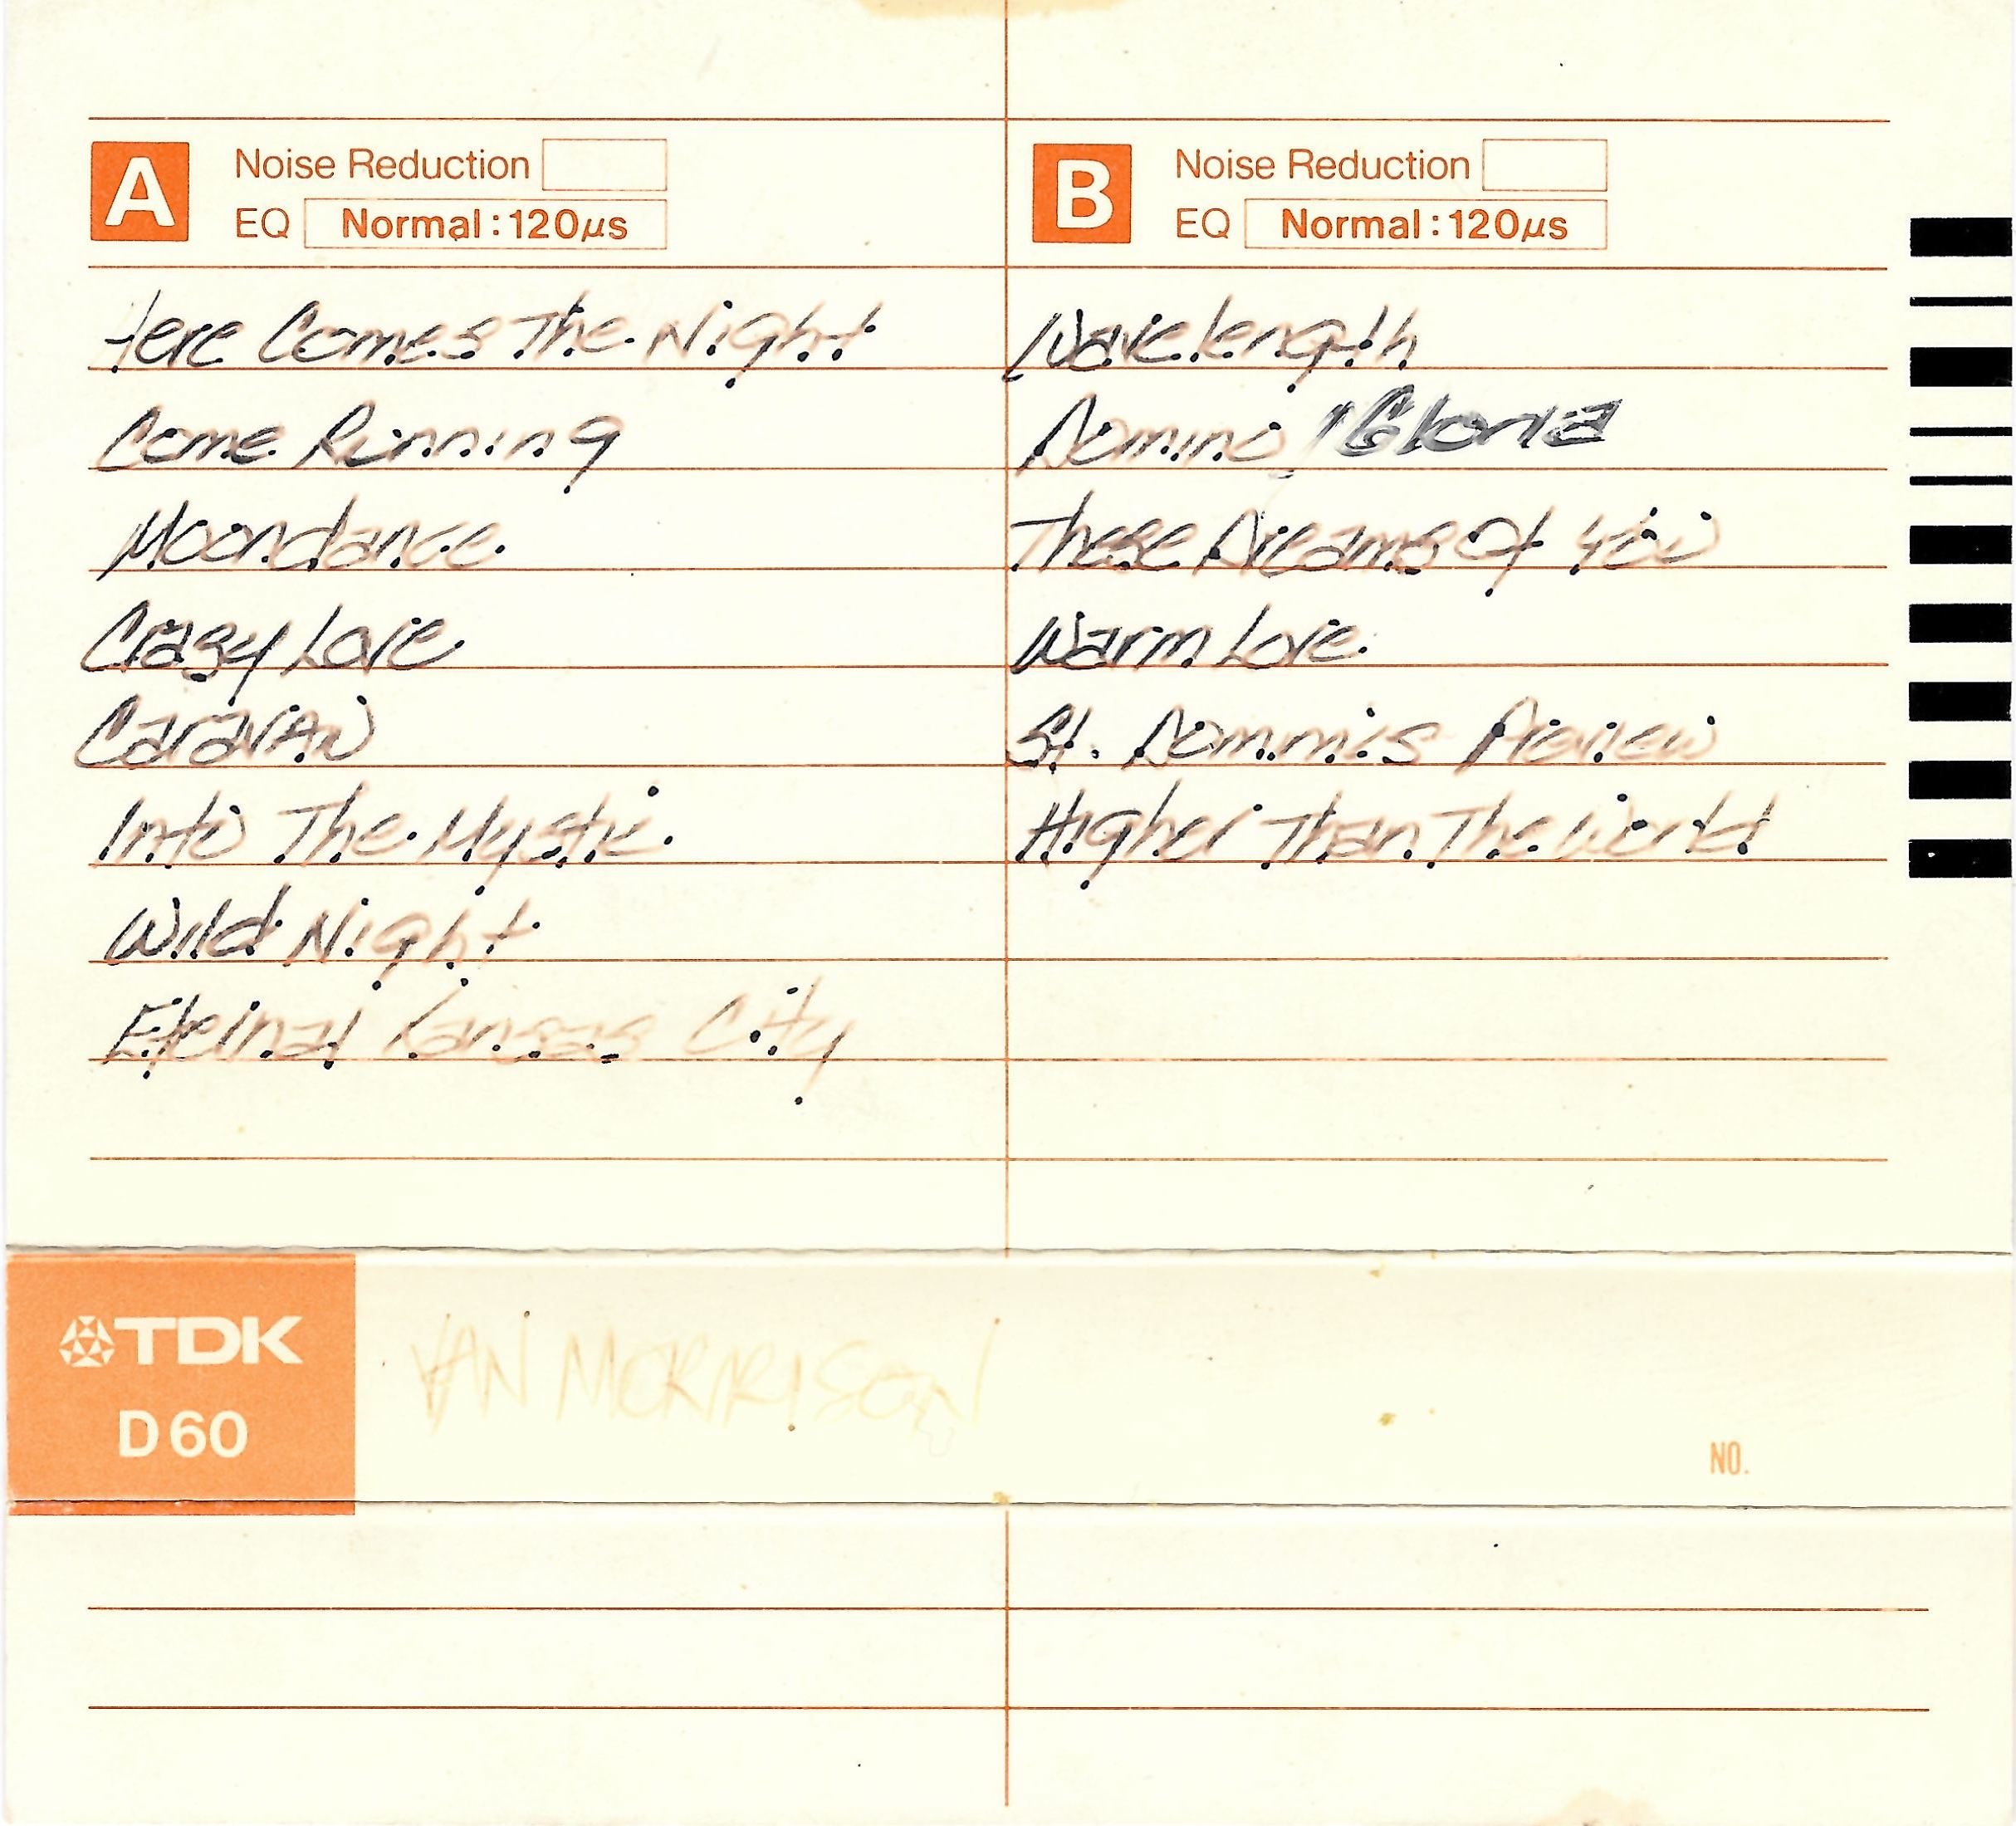 A Noise Reduction
EQ Normal : 120µs
Here Comes The Night
Come Running
Moondance
Crazy Love
Caravan
Into The Mystic
Wild Night
Eternal Kansas City
B Noise Reduction
EQ Normal : 120µs
Wavelength
Domino / Gloria
These Dreams Of You
Warm Love
St. Dominic's Preview
Higher Than The World
TDK
D60
VAN MORRISON
NO.